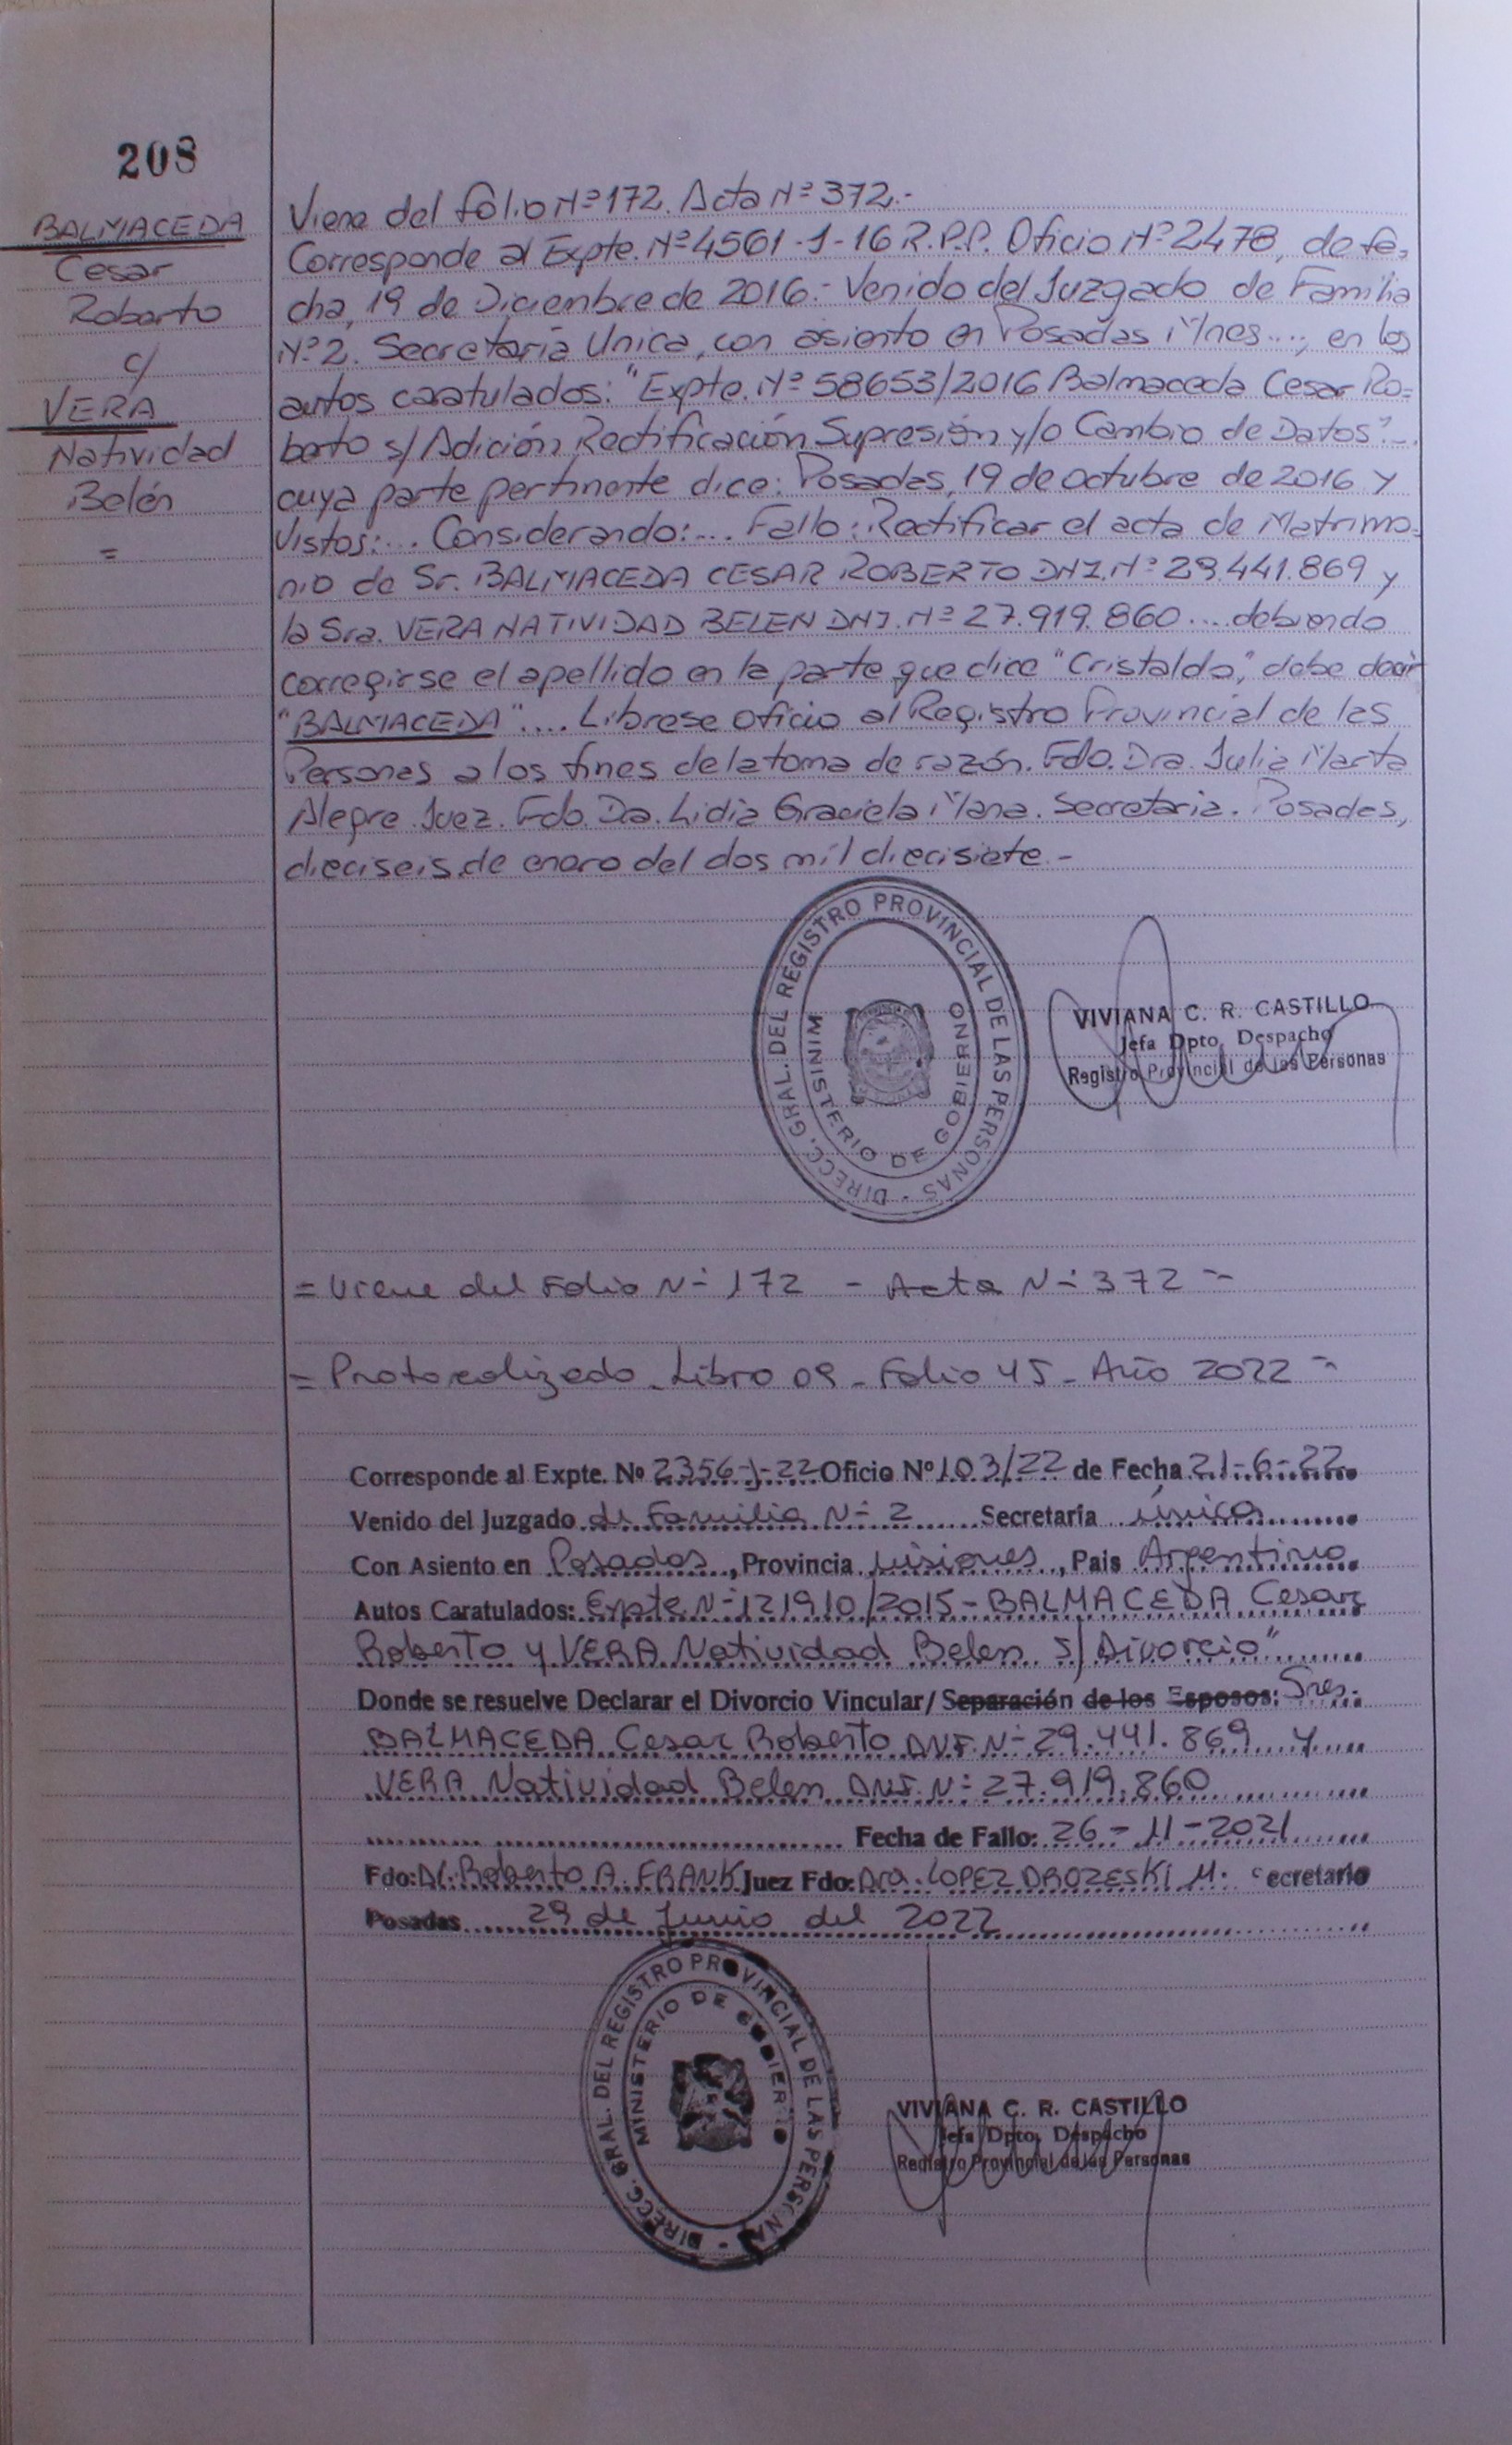 208
BALMACEDA
Cesar
Roberto
c/
VERA
Natividad
Belén
=
Viene del folio Nº 172. Acta Nº 372.-
Corresponde al Expte. Nº 4561-J-16 R.P.P. Oficio Nº 2478, de fe-
cha, 19 de Diciembre de 2016.- Venido del Juzgado de Familia
Nº 2. Secretaría Unica, con asiento en Posadas Mnes..., en los
autos caratulados: "Expte. Nº 58653/2016 Balmaceda Cesar Ro-
berto s/ Adición, Rectificación Supresión y/o Cambio de Datos"...
cuya parte pertinente dice: Posadas, 19 de octubre de 2016 y
Vistos:... Considerando:... Fallo: Rectificar el acta de Matrimo-
nio de Sr. BALMACEDA CESAR ROBERTO DNI. Nº 29.441.869 y
la Sra. VERA NATIVIDAD BELEN DNI. Nº 27.919.860 .... debiendo
corregirse el apellido en la parte que dice "Cristaldo," debe decir
"BALMACEDA".... Librese oficio al Registro Provincial de las
Personas a los fines de la toma de razón. Fdo. Dra. Julia Marta
Alegre. Juez. Fdo. Dra. Lidia Graciela Mana. Secretaria. Posadas,
dieciseis de enero del dos mil diecisiete.-
DIRECC. GRAL. DEL REGISTRO PROVINCIAL DE LAS PERSONAS
MINISTERIO DE GOBIERNO
VIVIANA C. R. CASTILLO
Jefa Dpto. Despacho
Registro Provincial de las Personas
= Viene del Folio Nº 172 - Acta Nº 372 =
= Protocolizado - Libro 09 - Folio 45 - Año 2022 =
Corresponde al Expte. Nº 2356-J-22 Oficio Nº 103/22 de Fecha 21-6-22
Venido del Juzgado de Familia Nº 2 Secretaría única
Con Asiento en Posadas, Provincia Misiones, Pais Argentina
Autos Caratulados: Expte Nº 121910/2015 - BALMACEDA Cesar
Roberto y VERA Natividad Belen s/ Divorcio"
Donde se resuelve Declarar el Divorcio Vincular/ Separación de los Esposos: Sres.
BALMACEDA Cesar Roberto DNI. Nº 29.441.869 y
VERA Natividad Belen DNI. Nº 27.919.860
Fecha de Fallo: 26-11-2021
Fdo: Dr. Roberto A. FRANK Juez Fdo: Dra. LOPEZ DROZESKI M. Secretario
Posadas 29 de Junio del 2022
DIRECC. GRAL. DEL REGISTRO PROVINCIAL DE LAS PERSONAS
MINISTERIO DE GOBIERNO
VIVIANA C. R. CASTILLO
Jefa Dpto. Despacho
Registro Provincial de las Personas